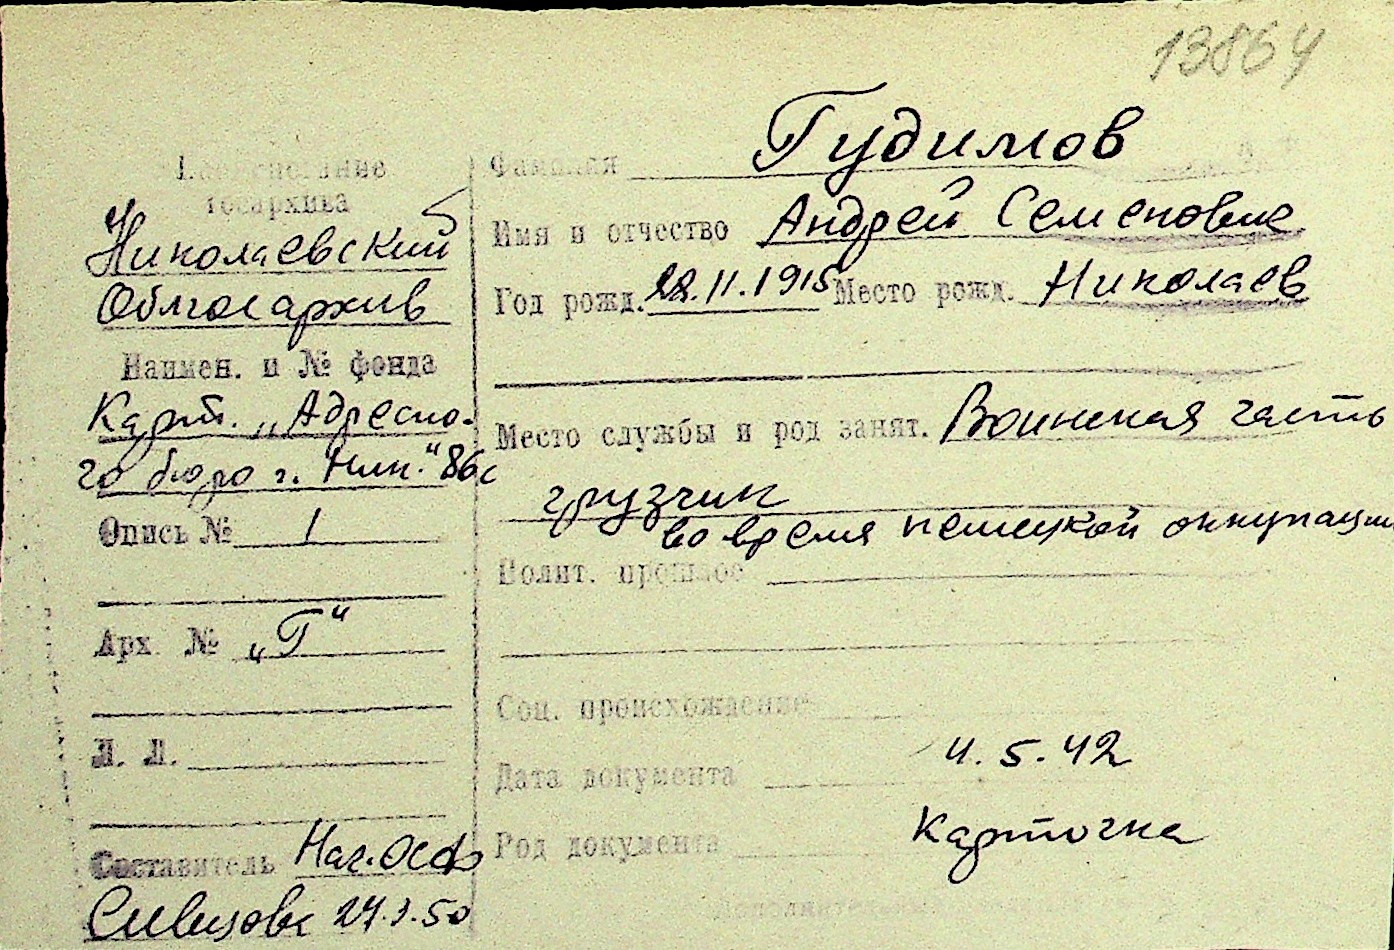 13864
Наименование
госархива
Николаевский
Облгосархив
Наимен. и № фонда
Карт. „Адресно-
го бюро г. Ник.“ 86с
Опись № 1
Арх. № „Г“
Л. Л.
Составитель Нач. ОСФ
27.3.50
Фамилия Гудимов
Имя и отчество Андрей Семенович
Год рожд. 28.11.1915 Место рожд. Николаев
Место службы и род занят. Воинская часть
грузчик
во время немецкой оккупации
Полит. прошлое
Соц. происхождение
Дата документа 4.5.42
Род документа Карточка